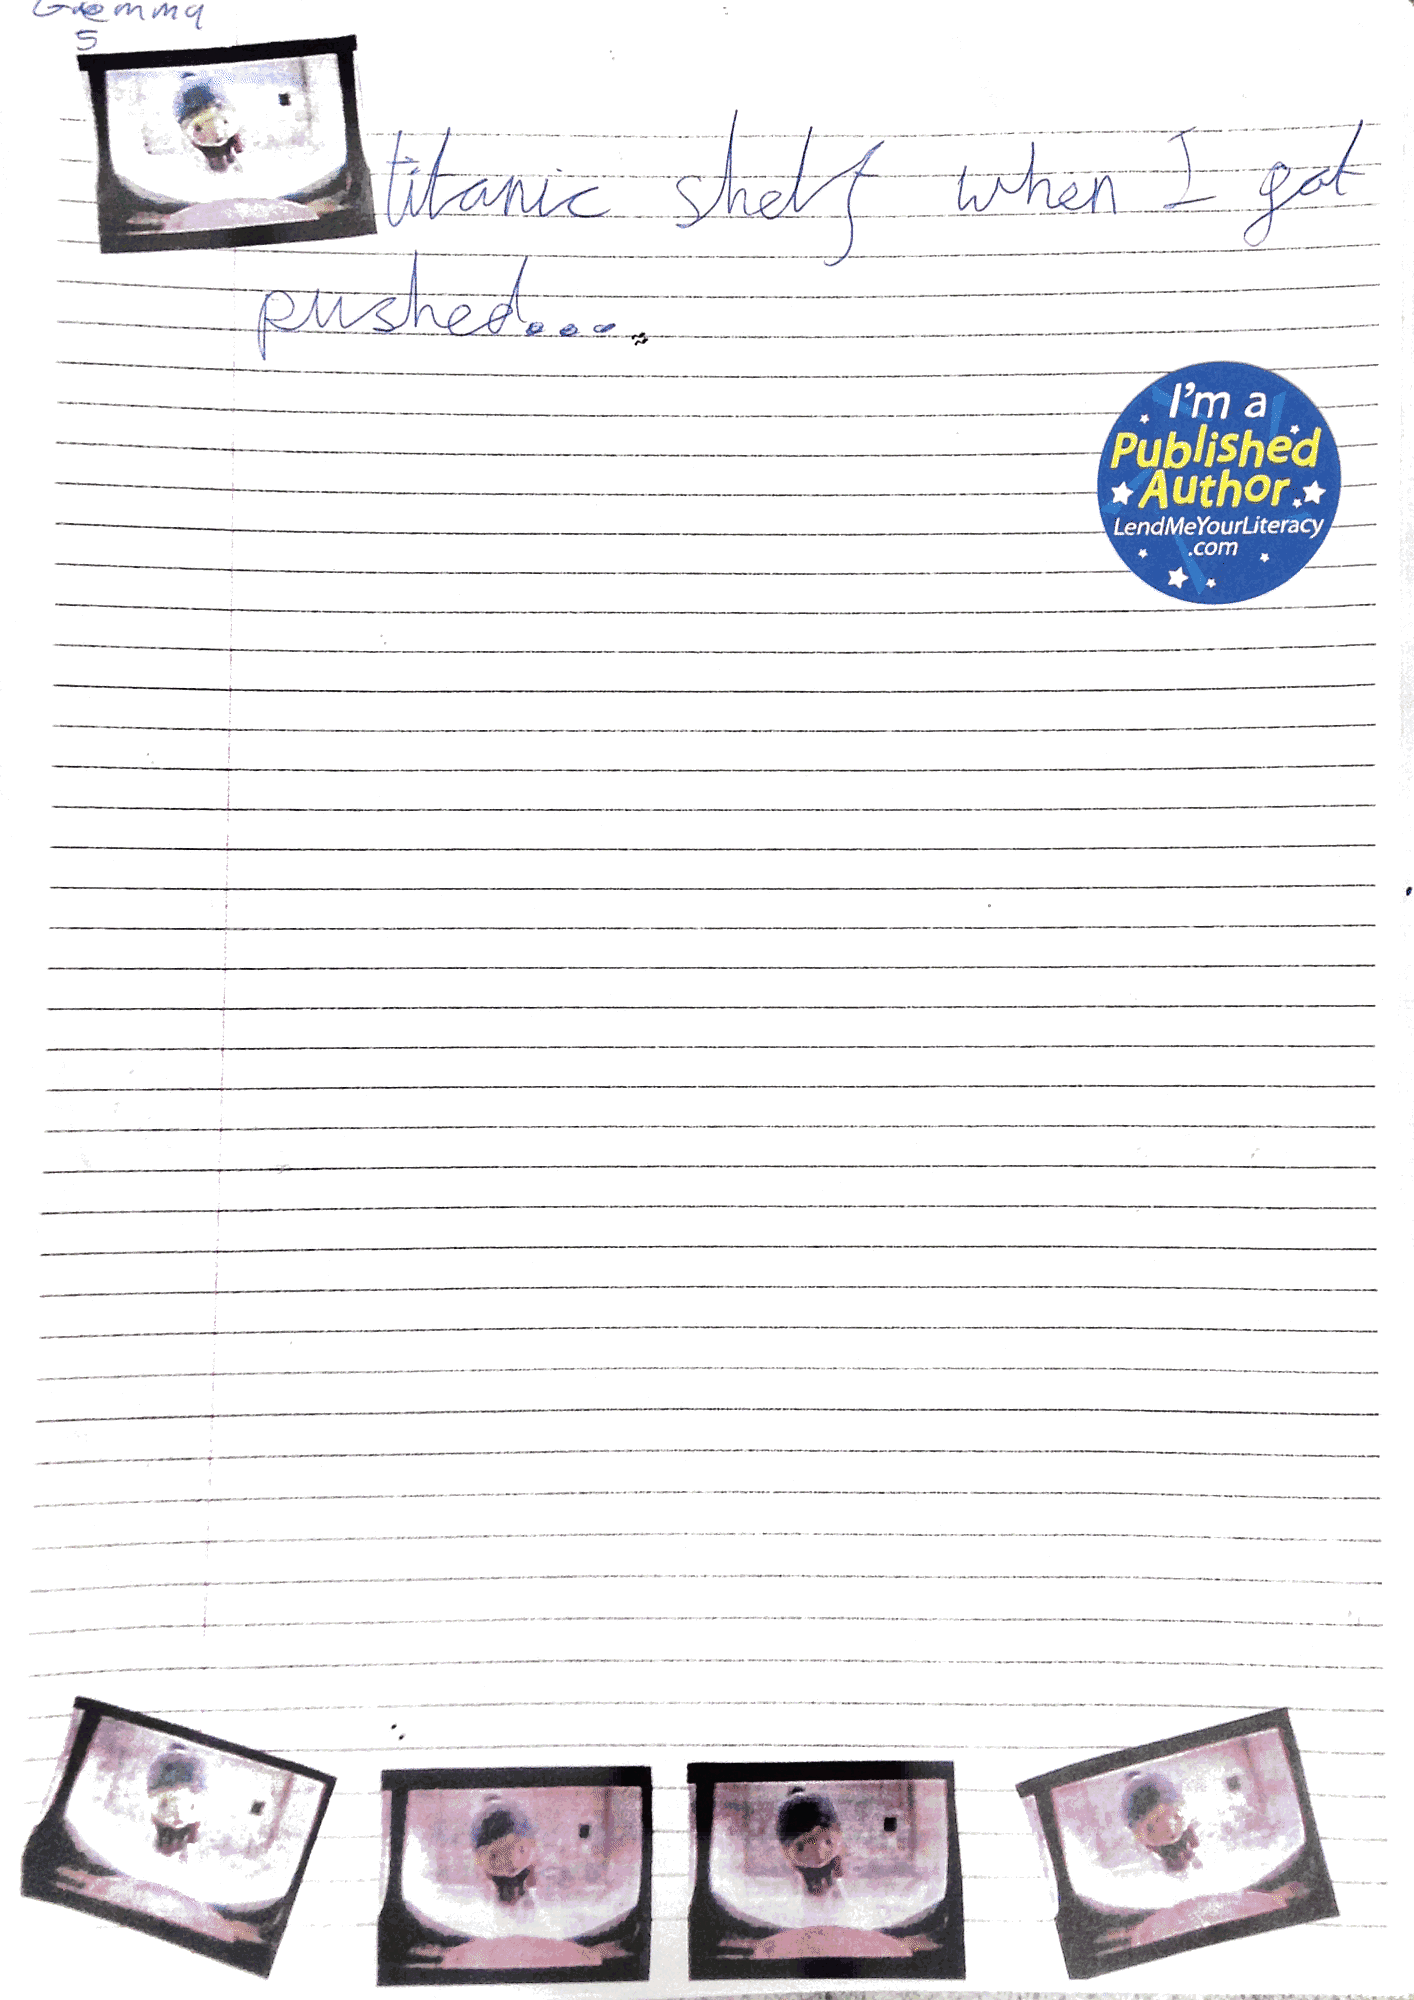 Gemma
5
titanic shelf when I got
pushed....
I'm a
Published
Author
LendMeYourLiteracy
.com